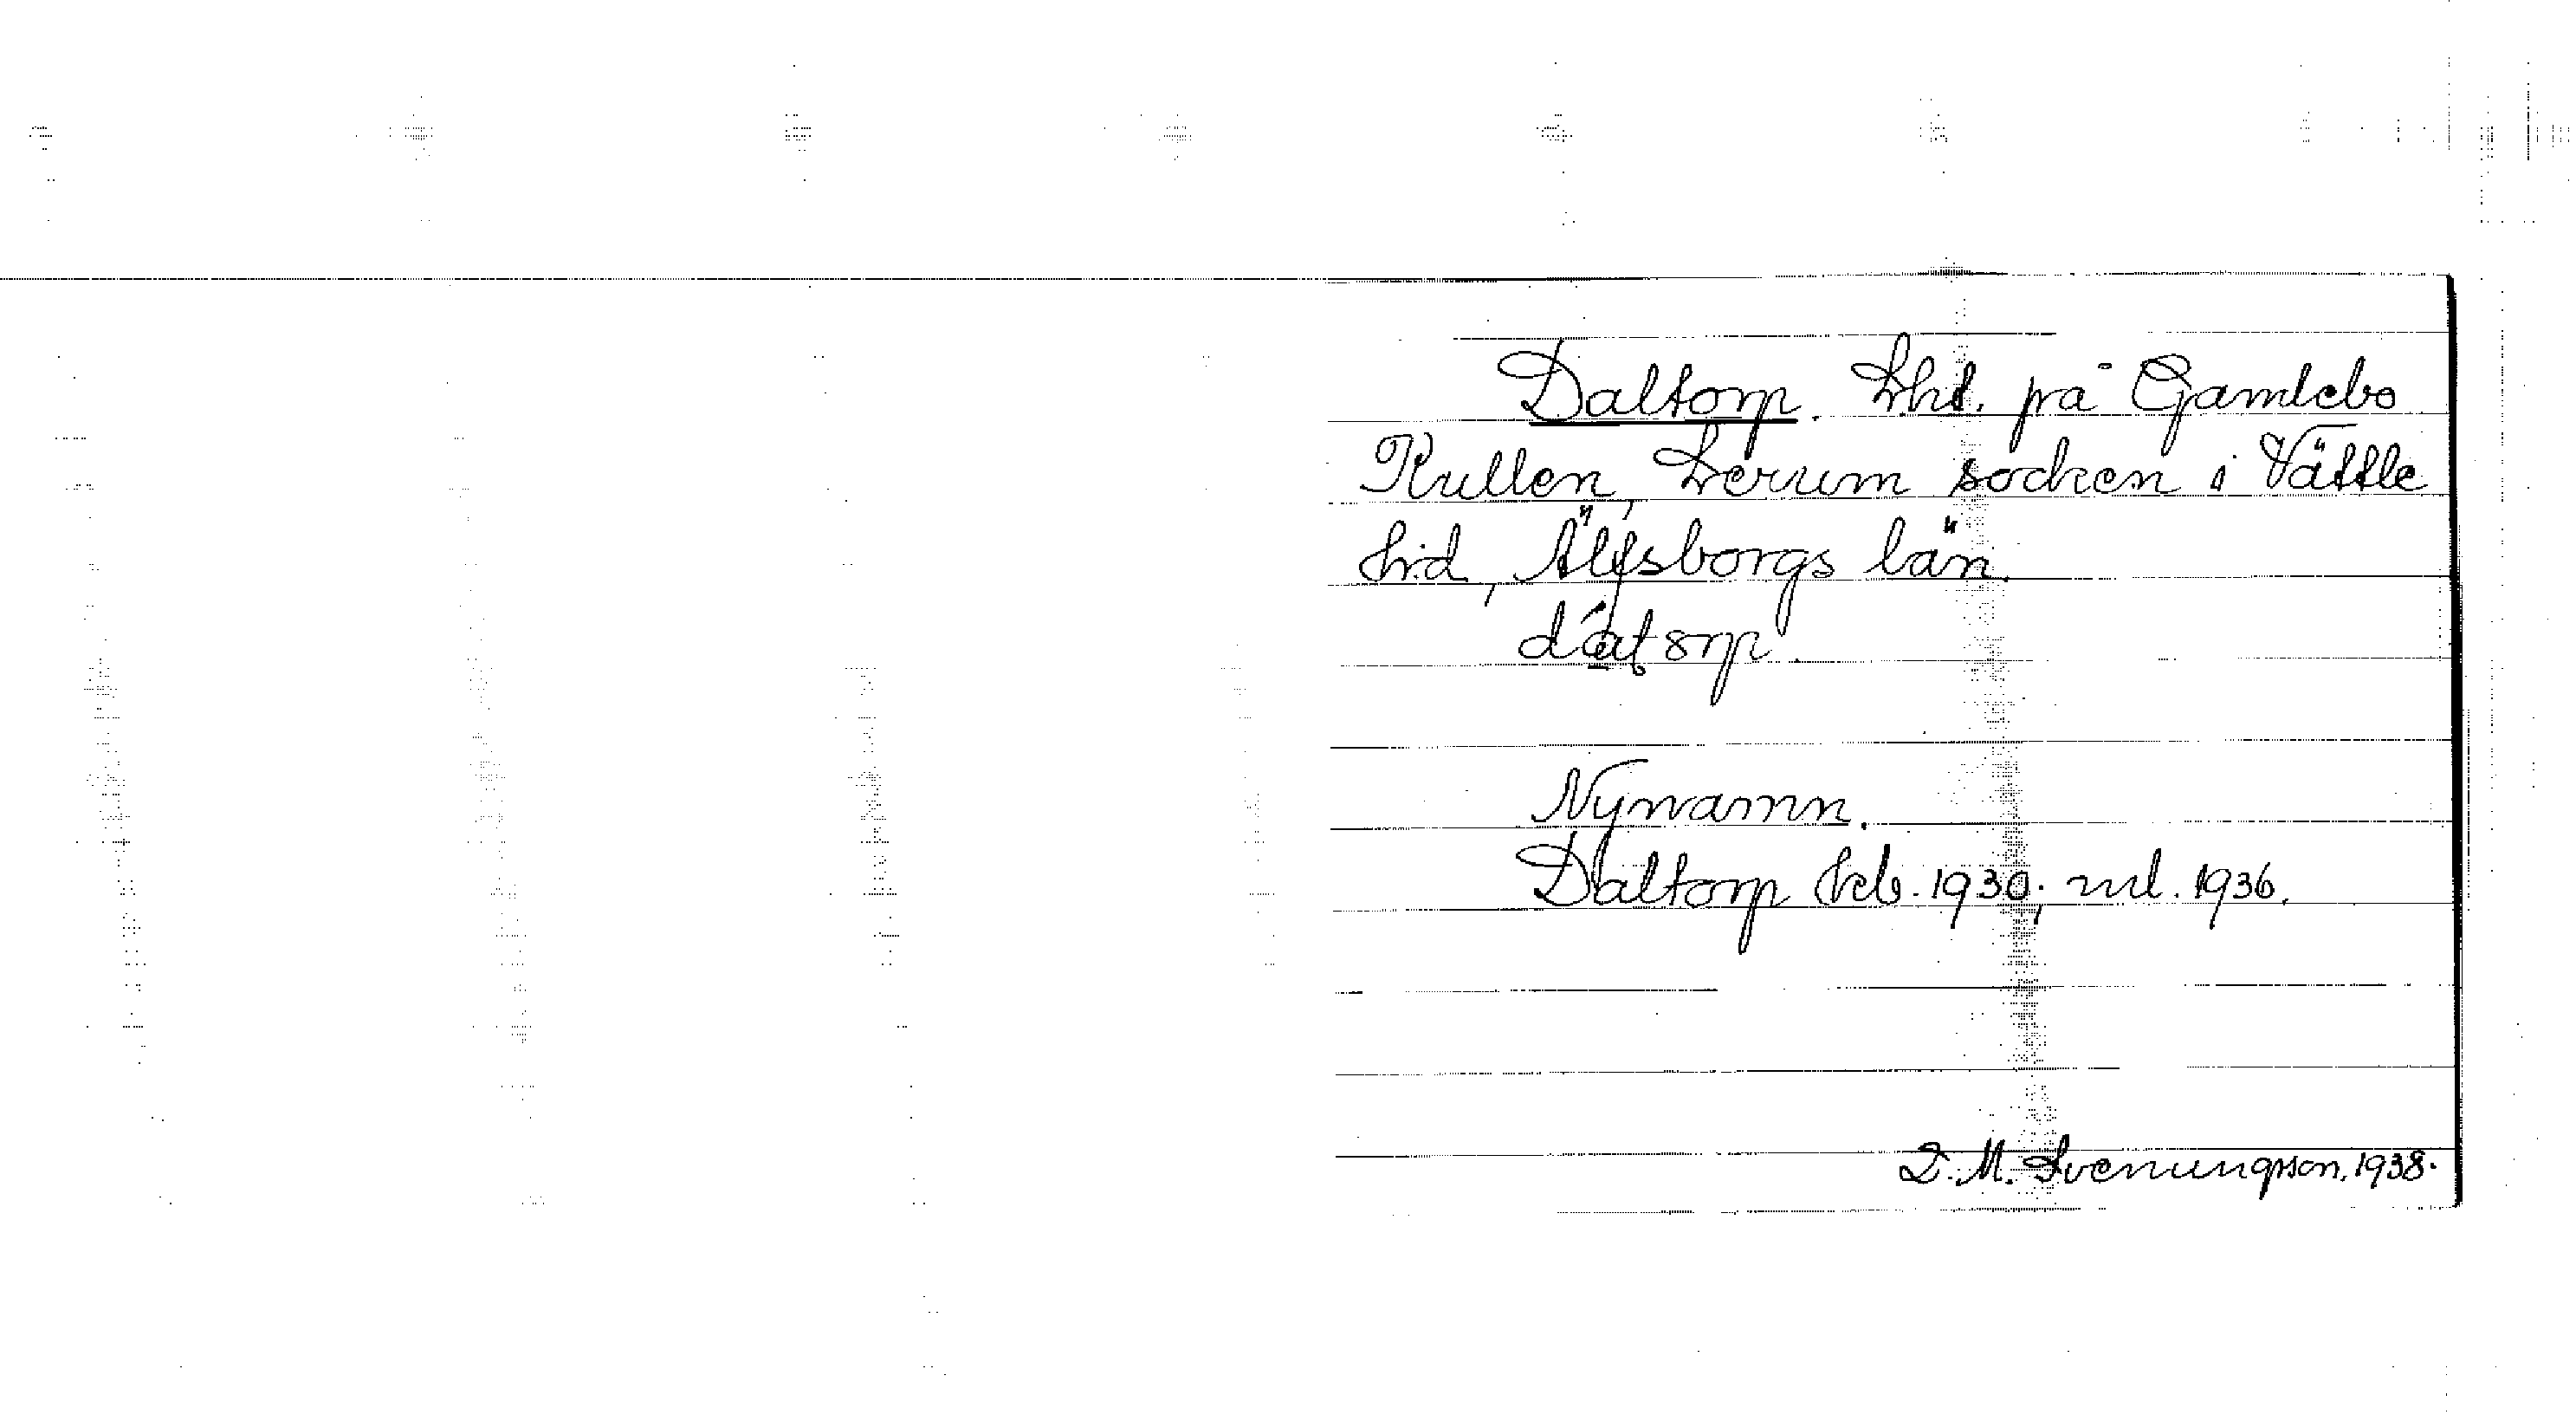 Daltorp. Lht. på Gamlebo
Kullen, Lerum socken i Vättle
hd, Älfsborgs län.
Nynamn.
Daltorp 1930; ml. 1936.
D. M. Svenungsson, 1938.